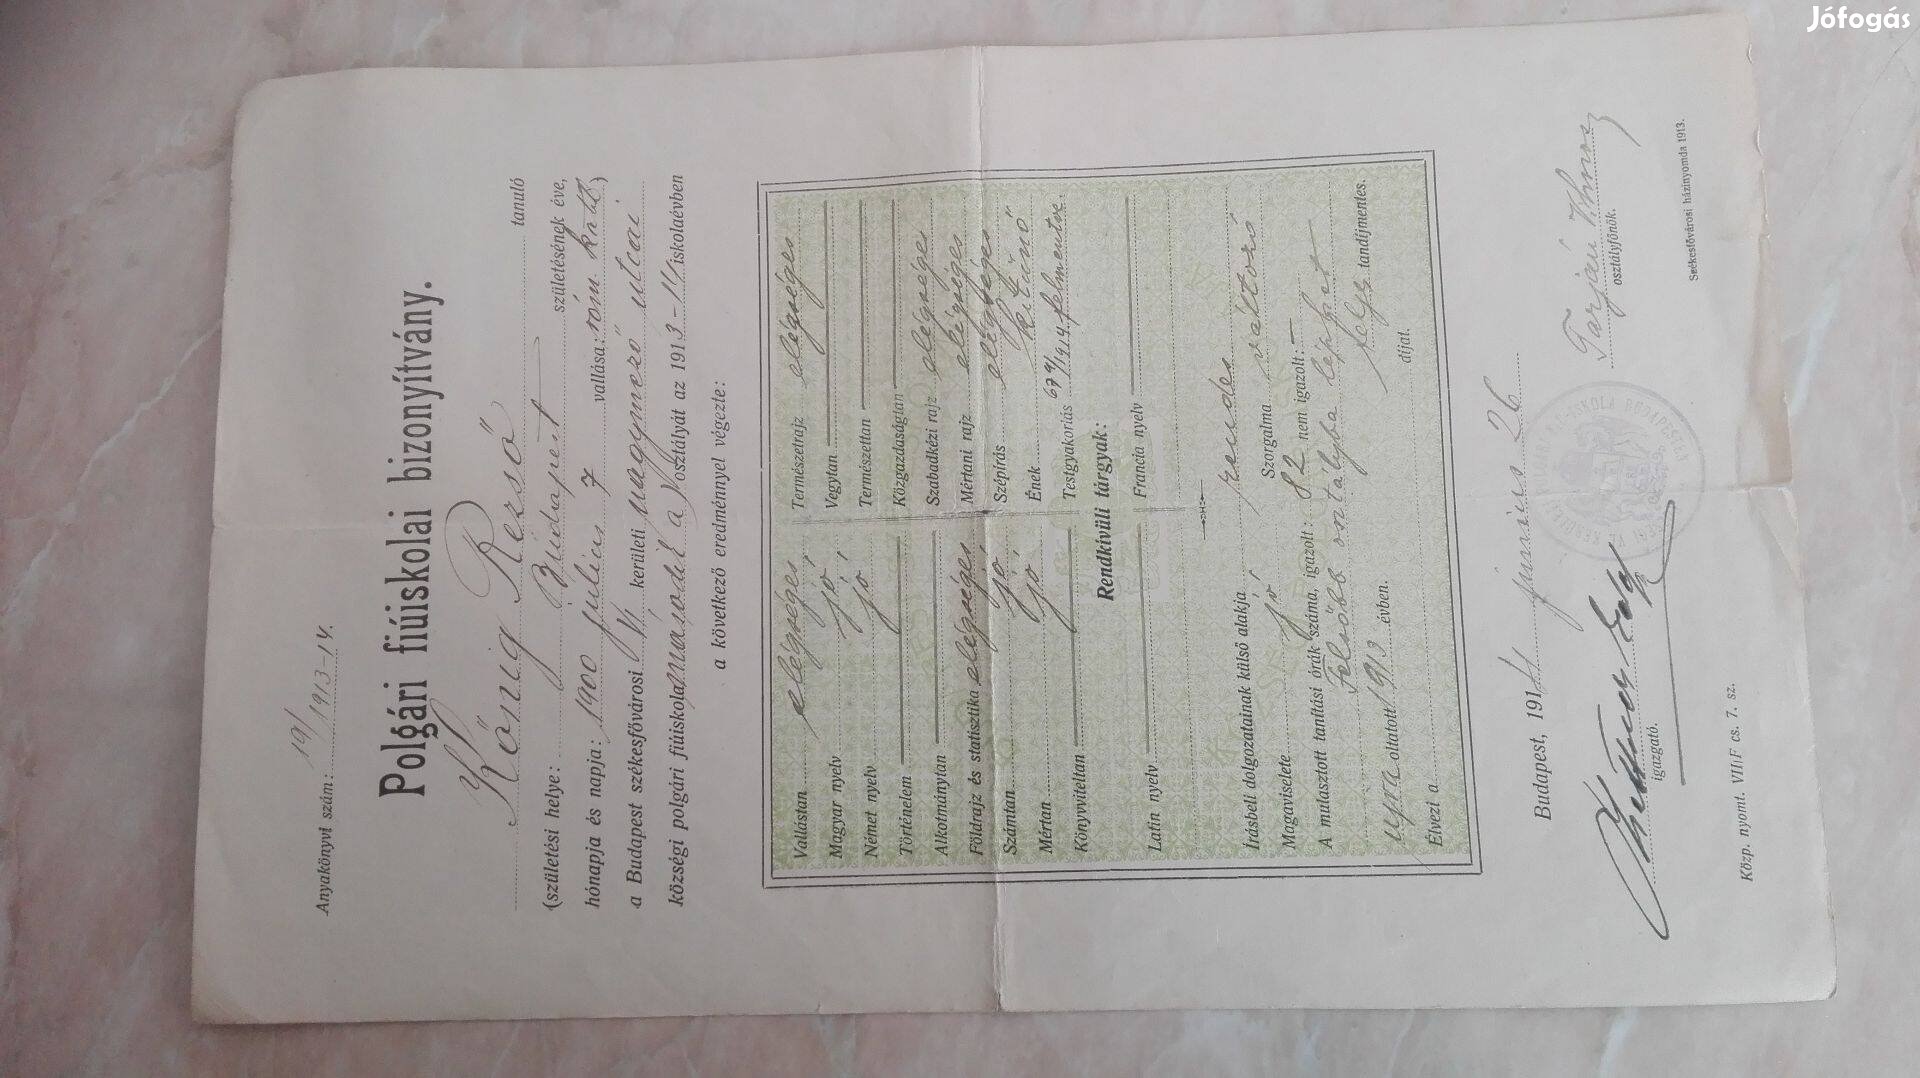 Jófogás
Anyakönyvi szám: 19/1913-14.
Polgári fiúiskolai bizonyítvány.
König Rezső tanuló
(születési helye: Budapest születésének éve,
hónapja és napja: 1900 julius 7 vallása: róm. kath)
a Budapest székesfővárosi VI kerületi nagymező utcai
községi polgári fiúiskola második a osztályát az 1913-14 iskolaévben
a következő eredménnyel végezte:
Vallástan elégséges
Magyar nyelv jó
Német nyelv jó
Történelem
Alkotmánytan
Földrajz és statisztika elégséges
Számtan jó
Mértan jó
Könyvviteltan
Természetrajz elégséges
Vegytan
Természettan
Közgazdaságtan
Szabadkézi rajz elégséges
Mértani rajz elégséges
Szépírás elégséges
Ének kitünő
Testgyakorlás 1914. felmentve.
Rendkívüli tárgyak:
Latin nyelv
Francia nyelv
Írásbeli dolgozatainak külső alakja rendes
Magaviselete jó Szorgalma változó
A mulasztott tanítási órák száma, igazolt: 82 nem igazolt: —
Felsőbb osztályba léphet
ujra oltatott 1913 évben. tandíjmentes.
Élvezi a díjat.
Budapest, 1914 junius 26
igazgató.
Tarján
osztályfőnök.
Közp. nyomt. VII/F cs. 7. sz.
Székesfővárosi házinyomda 1913.